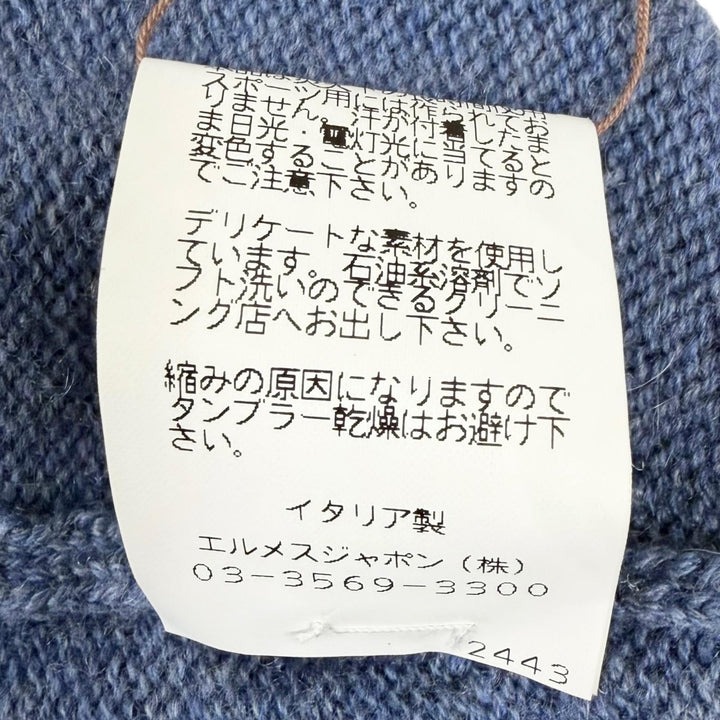 スポーツ用には作られてお
りません。汗が付着したま
ま日光・電灯光に当てると
変色することがありますの
でご注意下さい。
デリケートな素材を使用し
ています。石油系溶剤でソ
フト洗いのできるクリーニ
ング店へお出し下さい。
縮みの原因になりますので
タンブラー乾燥はお避け下
さい。
イタリア製
エルメスジャポン（株）
03-3569-3300
2443